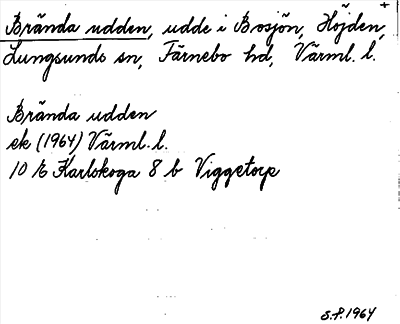 +
Brända udden, udde i Bosjön, Höjden,
Lungsunds sn, Färnebo hd, Värml. l.
Brända udden
ek (1964) Värml. l.
10 E Karlskoga 8 b Viggetorp
S.P. 1964